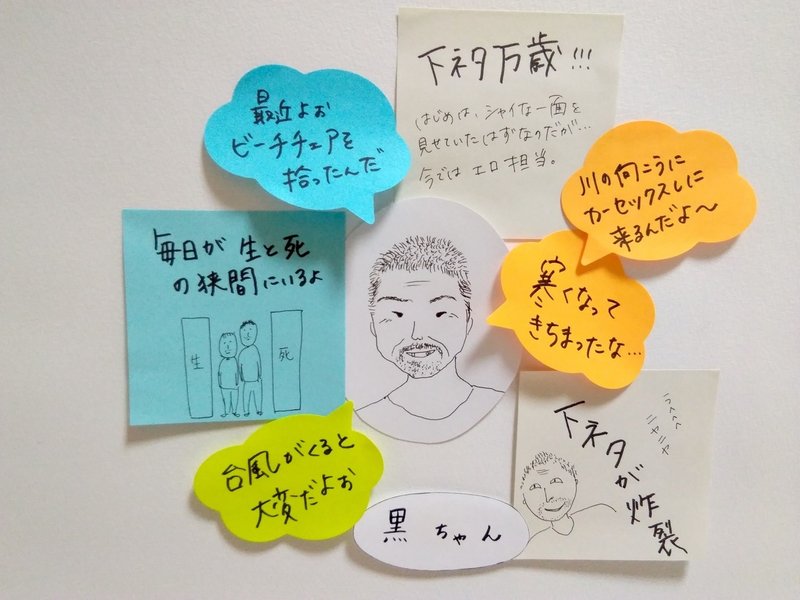 下ネタ万歳!!!
はじめは、シャイな一面を
見せていたはずなのだが…
今では エロ担当。
最近よぉ
ビーチチェアを
拾ったんだ
川の向こうに
カーセックスしに
来るんだよ〜
毎日が 生と死
の狭間にいるよ
生
死
寒くなって
きちまったな…
台風がくると
大変だよぉ
黒ちゃん
下ネタが炸裂
うへへへ
ニヤニヤ